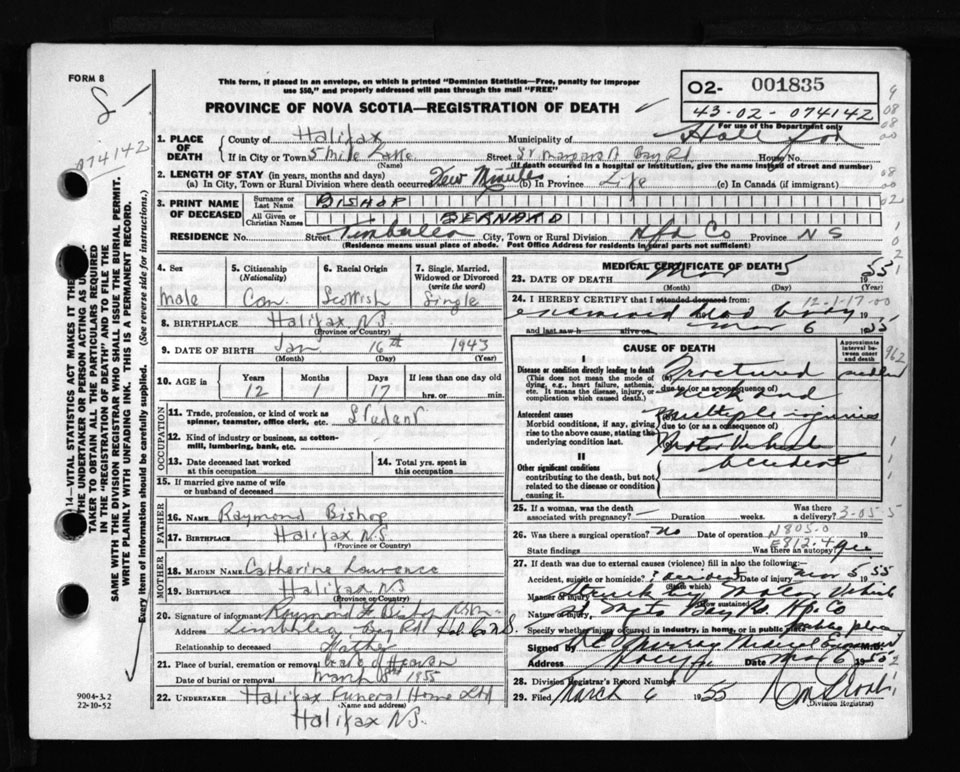 FORM 8
This form, if placed in an envelope, on which is printed "Dominion Statistics—Free, penalty for improper
use $50," and properly addressed will pass through the mail "FREE"
PROVINCE OF NOVA SCOTIA—REGISTRATION OF DEATH
02- 001835
43-02-074142
For use of the Department only
074142
1. PLACE OF DEATH
County of Halifax
Municipality of Halifax
If in City or Town 5 Mile Lake
(Name)
Street St Margaret Bay Rd House No.
(If death occurred in a hospital or institution, give the name instead of street and number)
2. LENGTH OF STAY (in years, months and days)
(a) In City, Town or Rural Division where death occurred Few Minutes (b) In Province Life (c) In Canada (if immigrant)
3. PRINT NAME OF DECEASED
Surname or Last Name BISHOP
All Given or Christian Names BERNARD
RESIDENCE No. Street Timberlea City, Town or Rural Division Hfx Co Province NS
(Residence means usual place of abode. Post Office Address for residents in rural parts not sufficient)
4. Sex
Male
5. Citizenship
(Nationality)
Can.
6. Racial Origin
Scottish
7. Single, Married,
Widowed or Divorced
(write the word)
Single
8. BIRTHPLACE Halifax N.S.
(Province or Country)
9. DATE OF BIRTH Jan 16th 1943
(Month) (Day) (Year)
10. AGE in
Years Months Days If less than one day old
12 1 17 hrs. or min.
OCCUPATION
11. Trade, profession, or kind of work as
spinner, teamster, office clerk, etc. Student
12. Kind of industry or business, as cotton-
mill, lumbering, bank, etc.
13. Date deceased last worked
at this occupation
14. Total yrs. spent in
this occupation
15. If married give name of wife
or husband of deceased
FATHER
16. NAME Raymond Bishop
17. BIRTHPLACE Halifax N.S.
(Province or Country)
MOTHER
18. MAIDEN NAME Catherine Lawrence
19. BIRTHPLACE Halifax N.S
(Province or Country)
20. Signature of informant Raymond Bishop
Address Timberlea Bay Rd Hal Co N.S.
Relationship to deceased Father
21. Place of burial, cremation or removal Gate of Heaven
Date of burial or removal March 8th 1955
22. UNDERTAKER Halifax Funeral Home Ltd
(Name and address)
Halifax N.S.
MEDICAL CERTIFICATE OF DEATH
23. DATE OF DEATH Mar 5 1955
(Month) (Day) (Year)
24. I HEREBY CERTIFY that I attended deceased from:
12-1-17-00
examined dead body 19
and last saw h alive on Mar 6 1955
CAUSE OF DEATH
Approximate
interval be-
tween onset
and death
I
Disease or condition directly leading to death
(This does not mean the mode of
dying, e.g., heart failure, asthenia,
etc. It means the disease, injury, or
complication which caused death.)
(a) Fractured
due to (or as a consequence of)
neck and
Antecedent causes
Morbid conditions, if any, giving
rise to the above cause, stating the
underlying condition last.
multiple injuries
due to (or as a consequence of)
Motor Vehicle
accident
II
Other significant conditions
contributing to the death, but not
related to the disease or condition
causing it.
962
25. If a woman, was the death
associated with pregnancy? Duration weeks. Was there
a delivery?
3-05-5
26. Was there a surgical operation? no Date of operation 19
N805.0
E812.4
State findings Was there an autopsy?
27. If death was due to external causes (violence) fill in also the following:
Accident, suicide or homicide? accident Date of injury Mar 5 1955
(State which)
Manner of injury Struck by Motor Vehicle
(How sustained)
Nature of injury St Mgts Bay Rd. Hfx. Co
Specify whether injury occurred in industry, in home, or in public place public place
Signed by Medical Examiner M.D.
Address Halifax Date Mar 6 1955
28. Division Registrar's Record Number
29. Filed March 6 1955
(Division Registrar)
14—VITAL STATISTICS ACT MAKES IT THE
THE UNDERTAKER OR PERSON ACTING AS
TAKER TO OBTAIN ALL THE PARTICULARS REQUIRED
IN THE "REGISTRATION OF DEATH" AND TO FILE THE
SAME WITH THE DIVISION REGISTRAR WHO SHALL ISSUE THE BURIAL PERMIT.
WRITE PLAINLY WITH UNFADING INK. THIS IS A PERMANENT RECORD.
Every item of information should be carefully supplied. (See reverse side for instructions.)
9004-3.2
22-10-52